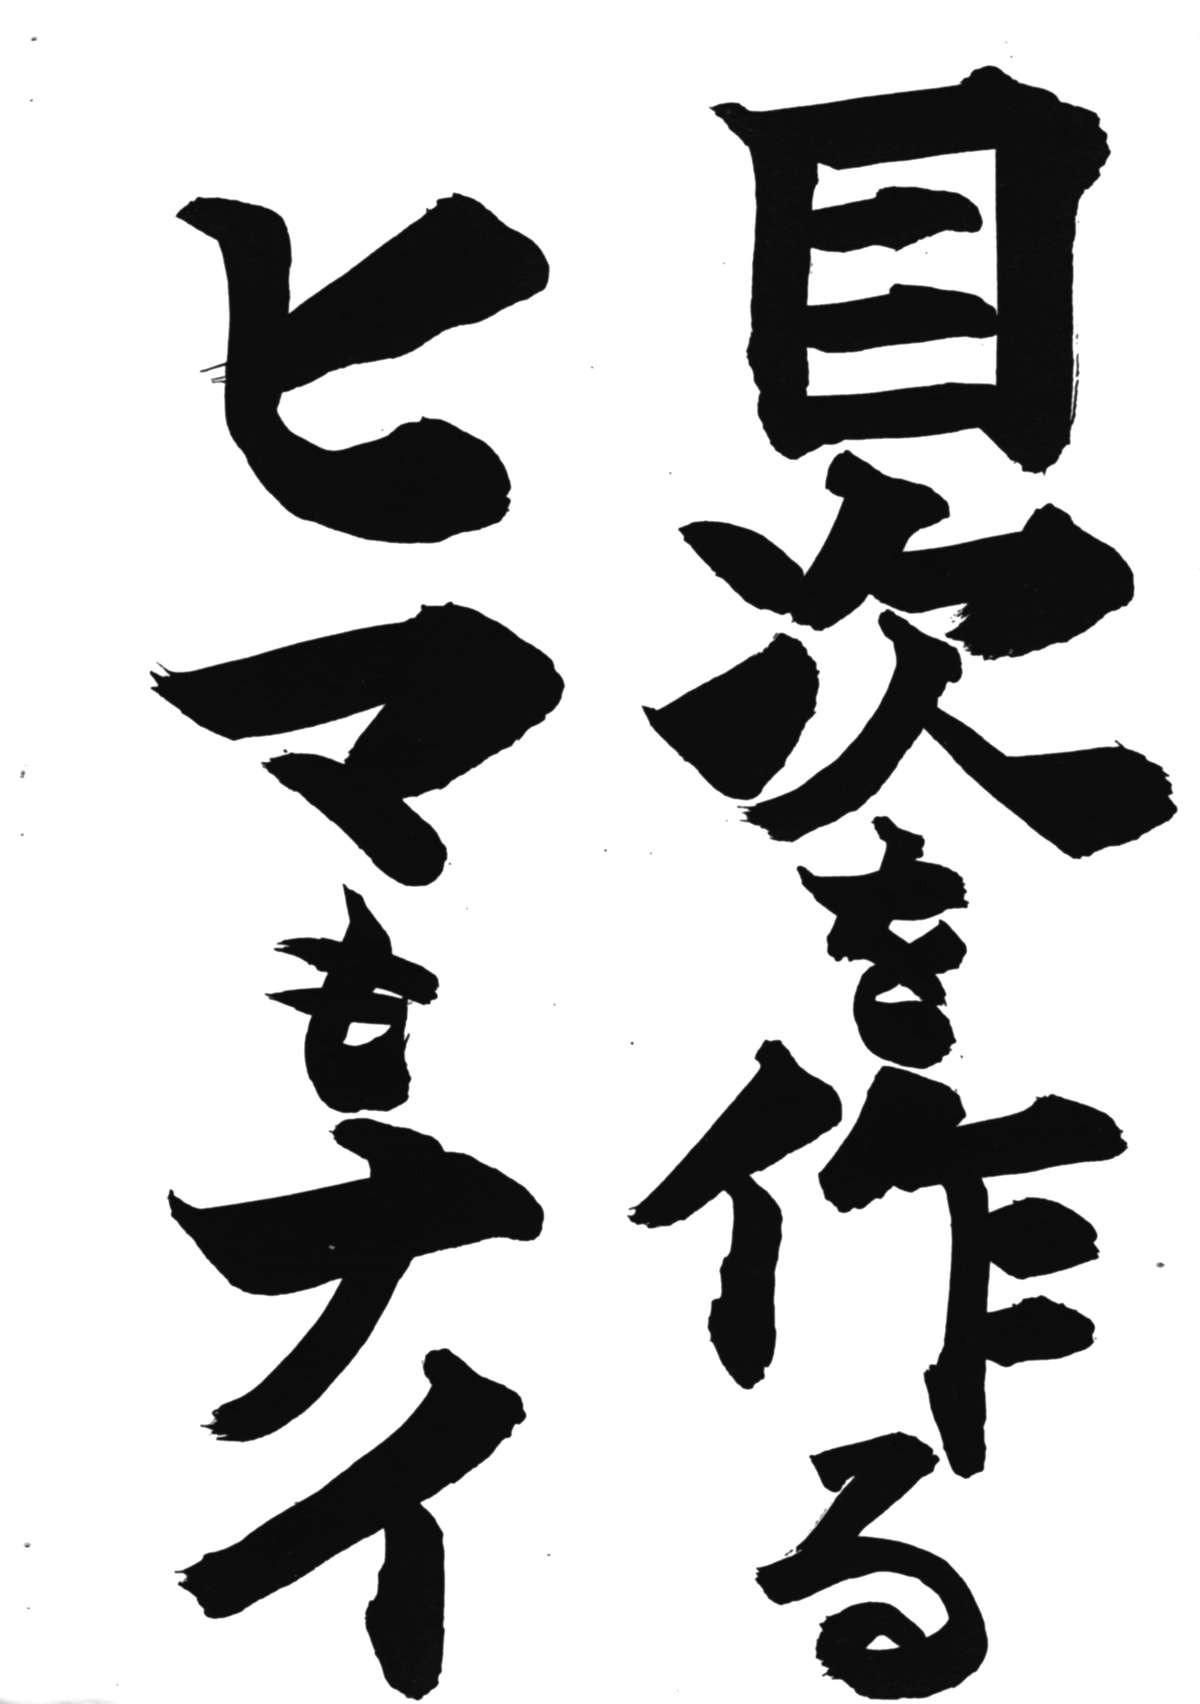 目次を作る
ヒマもナイ